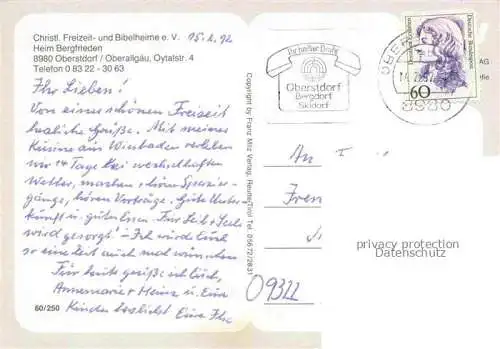 Christl. Freizeit- und Bibelheime e. V. 15.2.92
Heim Bergfrieden
8980 Oberstdorf / Oberallgäu, Oytalstr. 4
Telefon 0 83 22 - 30 63
Ihr Lieben!
Von einer schönen Freizeit
herzliche Grüße. Mit meiner
Kusine aus Wiesbaden verleben
wir 14 Tage bei wechselhaftem
Wetter, machen schöne Spazier-
gänge, hören Vorträge. Gute Unter-
kunft u. gutes Essen. Für Leib + Seele
wird gesorgt! - Ich würde Euch
so eine Zeit auch mal wünschen
Für heute grüße ich Euch,
Annemarie + Heinz u. Eure
Kinder herzlichst Eure
60/250
Copyright by Franz Milz Verlag, Reutte/Tirol Tel. 05672/2831
Ihr heißer Draht
Oberstdorf
Bergdorf
Skidorf
8980
Deutsche Bundespost
60
AG
An
09322
privacy protection
Datenschutz